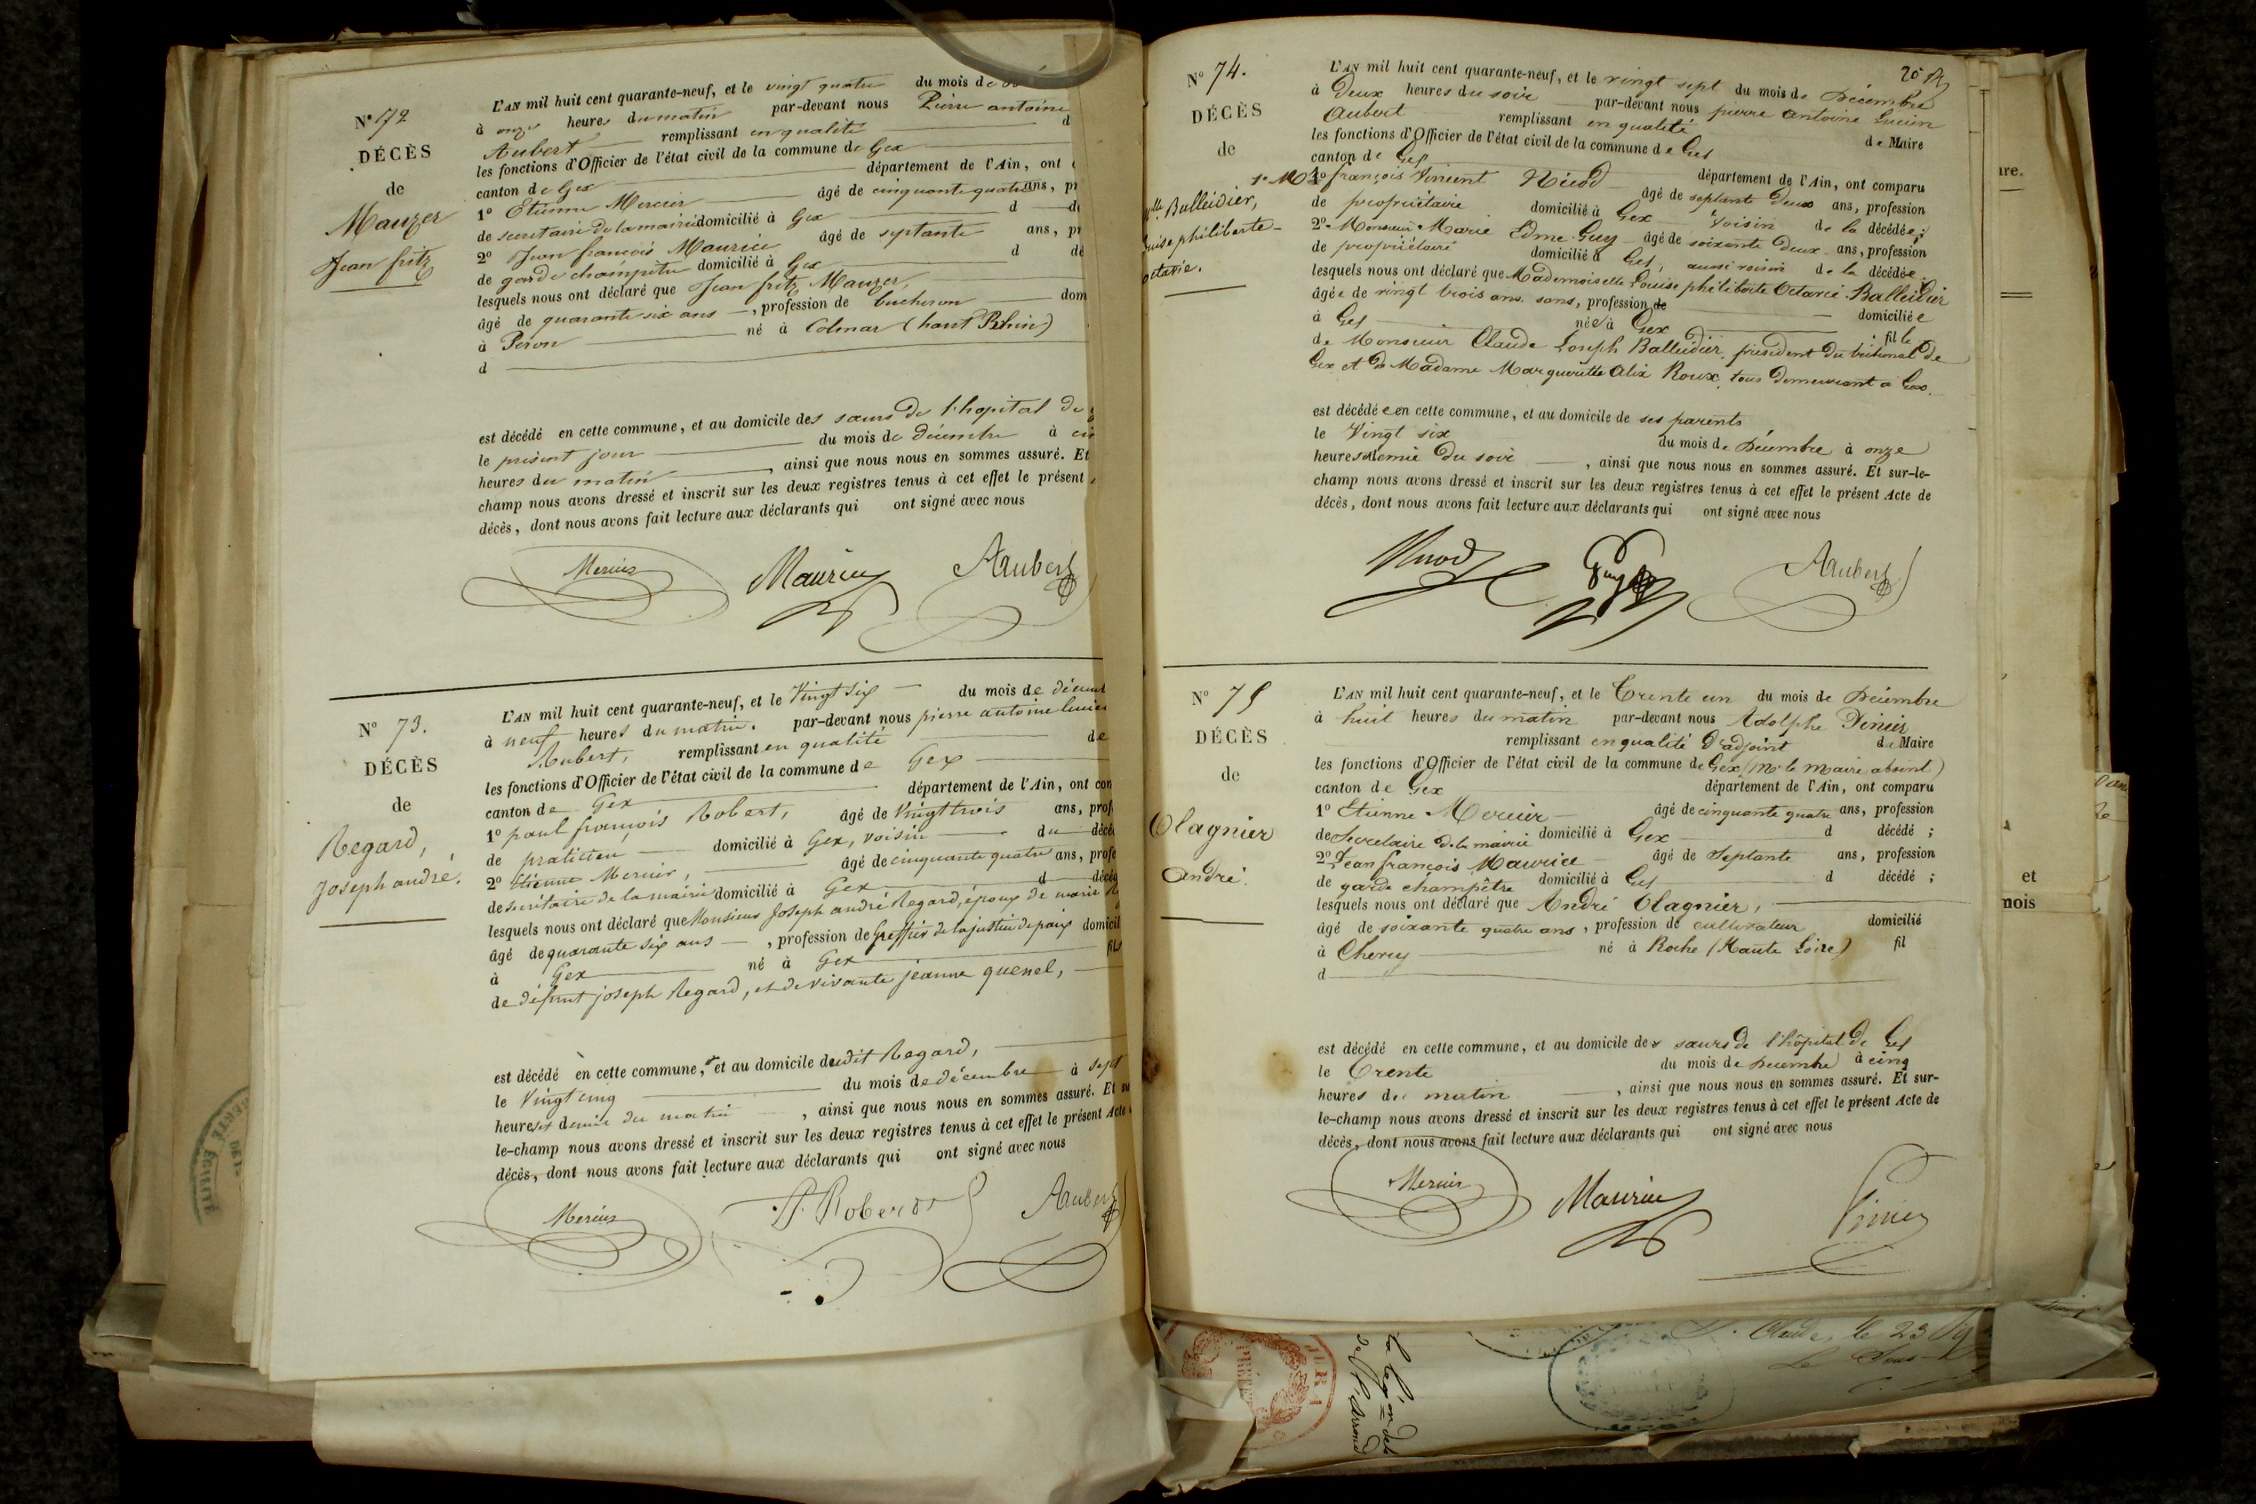 N° 72
DÉCÈS
de
Mauzer
Jean fritz
L'AN mil huit cent quarante-neuf, et le vingt quatre du mois de
à onze heures du matin par-devant nous Pierre antoine
Aubert remplissant en qualité d
les fonctions d'Officier de l'état civil de la commune de Gex
canton de Gex département de l'Ain, ont
1° Etienne Mercier âgé de cinquante quatre ans, pr
de secretaire de la mairie domicilié à Gex d dé
2° Jean françois Maurice âgé de septante ans, pr
de garde champêtre domicilié à Gex d dé
lesquels nous ont déclaré que Jean fritz Mauzer,
âgé de quarante six ans , profession de bucheron dom
à Péron né à Colmar (haut Rhin)
d
est décédé en cette commune, et au domicile des sœurs de l'hopital de
le présent jour du mois de décembre à cin
heures du matin , ainsi que nous nous en sommes assuré. Et
champ nous avons dressé et inscrit sur les deux registres tenus à cet effet le présent
décès, dont nous avons fait lecture aux déclarants qui ont signé avec nous
Mercier Maurice Aubert
N° 73.
DÉCÈS
de
Regard,
Joseph andré.
L'AN mil huit cent quarante-neuf, et le Vingt six du mois de décemb
à neuf heures du matin. par-devant nous pierre antoine lucien
Aubert, remplissant en qualité de
les fonctions d'Officier de l'état civil de la commune de Gex
canton de Gex département de l'Ain, ont con
1° paul françois Robert, âgé de Vingt trois ans, prof
de praticien domicilié à Gex, voisin du décé
2° Etienne Mercier, âgé de cinquante quatre ans, profe
de secrétaire de la mairie domicilié à Gex d décéd
lesquels nous ont déclaré que Monsieur Joseph andré Regard, époux de marie
âgé de quarante six ans , profession de Greffier de la justice de paix domicil
à Gex né à Gex fils
de défunt joseph Regard, et de vivante jeanne quenel,
est décédé en cette commune, et au domicile dudit Regard,
le Vingt cinq du mois de décembre à sept
heures et demie du matin , ainsi que nous nous en sommes assuré. Et su
le-champ nous avons dressé et inscrit sur les deux registres tenus à cet effet le présent Acte
décès, dont nous avons fait lecture aux déclarants qui ont signé avec nous
Mercier P. Robert Aubert
20
N° 74.
DÉCÈS
de
lle Balleidier,
ouise philiberte-
octavie.
L'AN mil huit cent quarante-neuf, et le vingt sept du mois de Décembre
à Deux heures du soir par-devant nous pierre antoine Lucien
Aubert remplissant en qualité de Maire
les fonctions d'Officier de l'état civil de la commune de Gex
canton de Gex département de l'Ain, ont comparu
1° M françois Vincent Nicod âgé de septante deux ans, profession
de propriétaire domicilié à Gex voisin de la décédée;
2° Monsieur Marie Edme Guy âgé de soixante deux ans, profession
de propriétaire domicilié à Gex, aussi voisin de la décédée
lesquels nous ont déclaré que Mademoiselle Louise philiberte Octavie Balleidier
âgée de vingt trois ans, sans, profession de domiciliée
à Gex née à Gex ; fille
de Monsieur Claude Joseph Balleidier, président du tribunal de
Gex et de Madame Marguerite Alix Roux, tous demeurant à Gex.
est décédée en cette commune, et au domicile de ses parents
le Vingt six du mois de Décembre à onze
heures et demie du soir , ainsi que nous nous en sommes assuré. Et sur-le-
champ nous avons dressé et inscrit sur les deux registres tenus à cet effet le présent Acte de
décès, dont nous avons fait lecture aux déclarants qui ont signé avec nous
Nicod Guy Aubert
N° 75
DÉCÈS
de
Olagnier
André.
L'AN mil huit cent quarante-neuf, et le Trente un du mois de Décembre
à huit heures du matin par-devant nous Adolphe Pinier
remplissant en qualité d'adjoint de Maire
les fonctions d'Officier de l'état civil de la commune de Gex (Mr le Maire absent)
canton de Gex département de l'Ain, ont comparu
1° Etienne Mercier âgé de cinquante quatre ans, profession
de Secretaire de la mairie domicilié à Gex d décédé ;
2° Jean françois Maurice âgé de Septante ans, profession
de garde champêtre domicilié à Gex d décédé ;
lesquels nous ont déclaré que André Olagnier,
âgé de soixante quatre ans , profession de cultivateur domicilié
à Chevry né à Roche (Haute Loire) fil
d
est décédé en cette commune, et au domicile des sœurs de l'hôpital de Gex
le Trente du mois de Décembre à cinq
heures du matin , ainsi que nous nous en sommes assuré. Et sur-
le-champ nous avons dressé et inscrit sur les deux registres tenus à cet effet le présent Acte de
décès, dont nous avons fait lecture aux déclarants qui ont signé avec nous
Mercier Maurice Pinier
ire.
et
mois
Claude, le 23
JURA